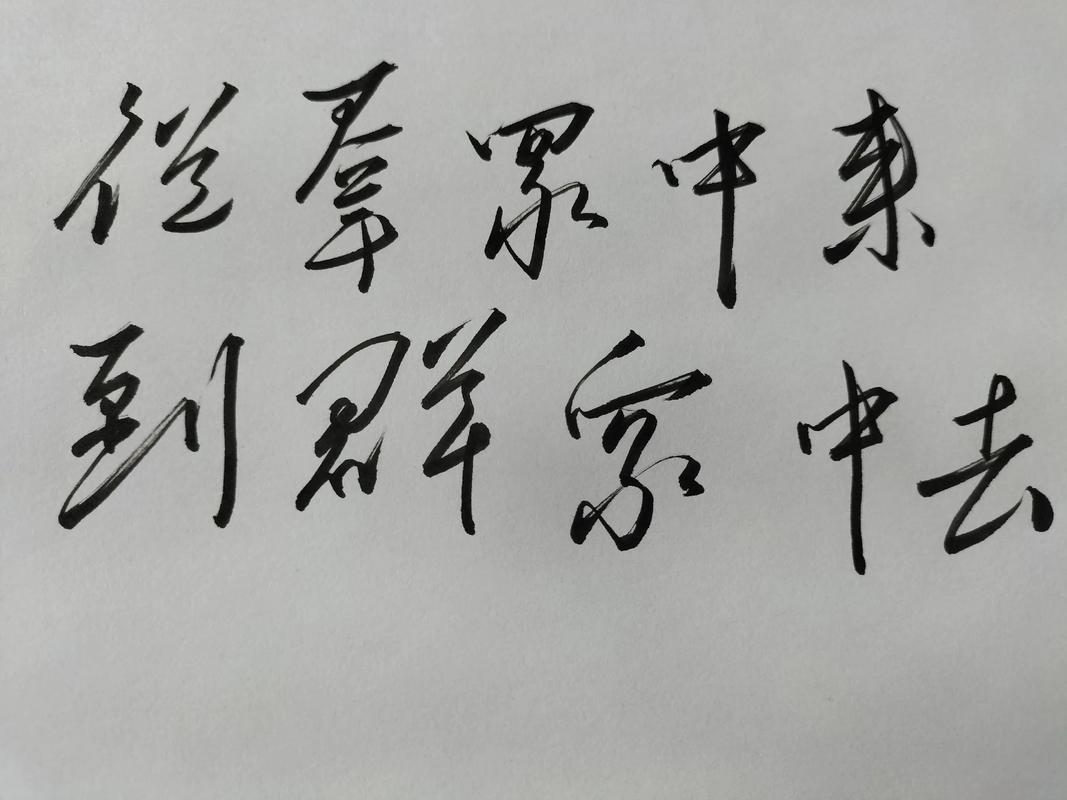 從羣眾中來
到群眾中去